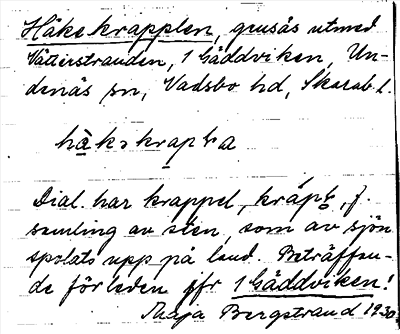 Håkekrapplen, grusås utmed
Vätterstranden, 1 Gäddviken, Un-
denäs sn, Vadsbo hd, Skarab. l.
Dial. har krappel, f.
samling av sten, som av sjön
spolats upp på land. Beträffan-
de förleden jfr 1 Gäddviken!
Maja Bergstrand 1930